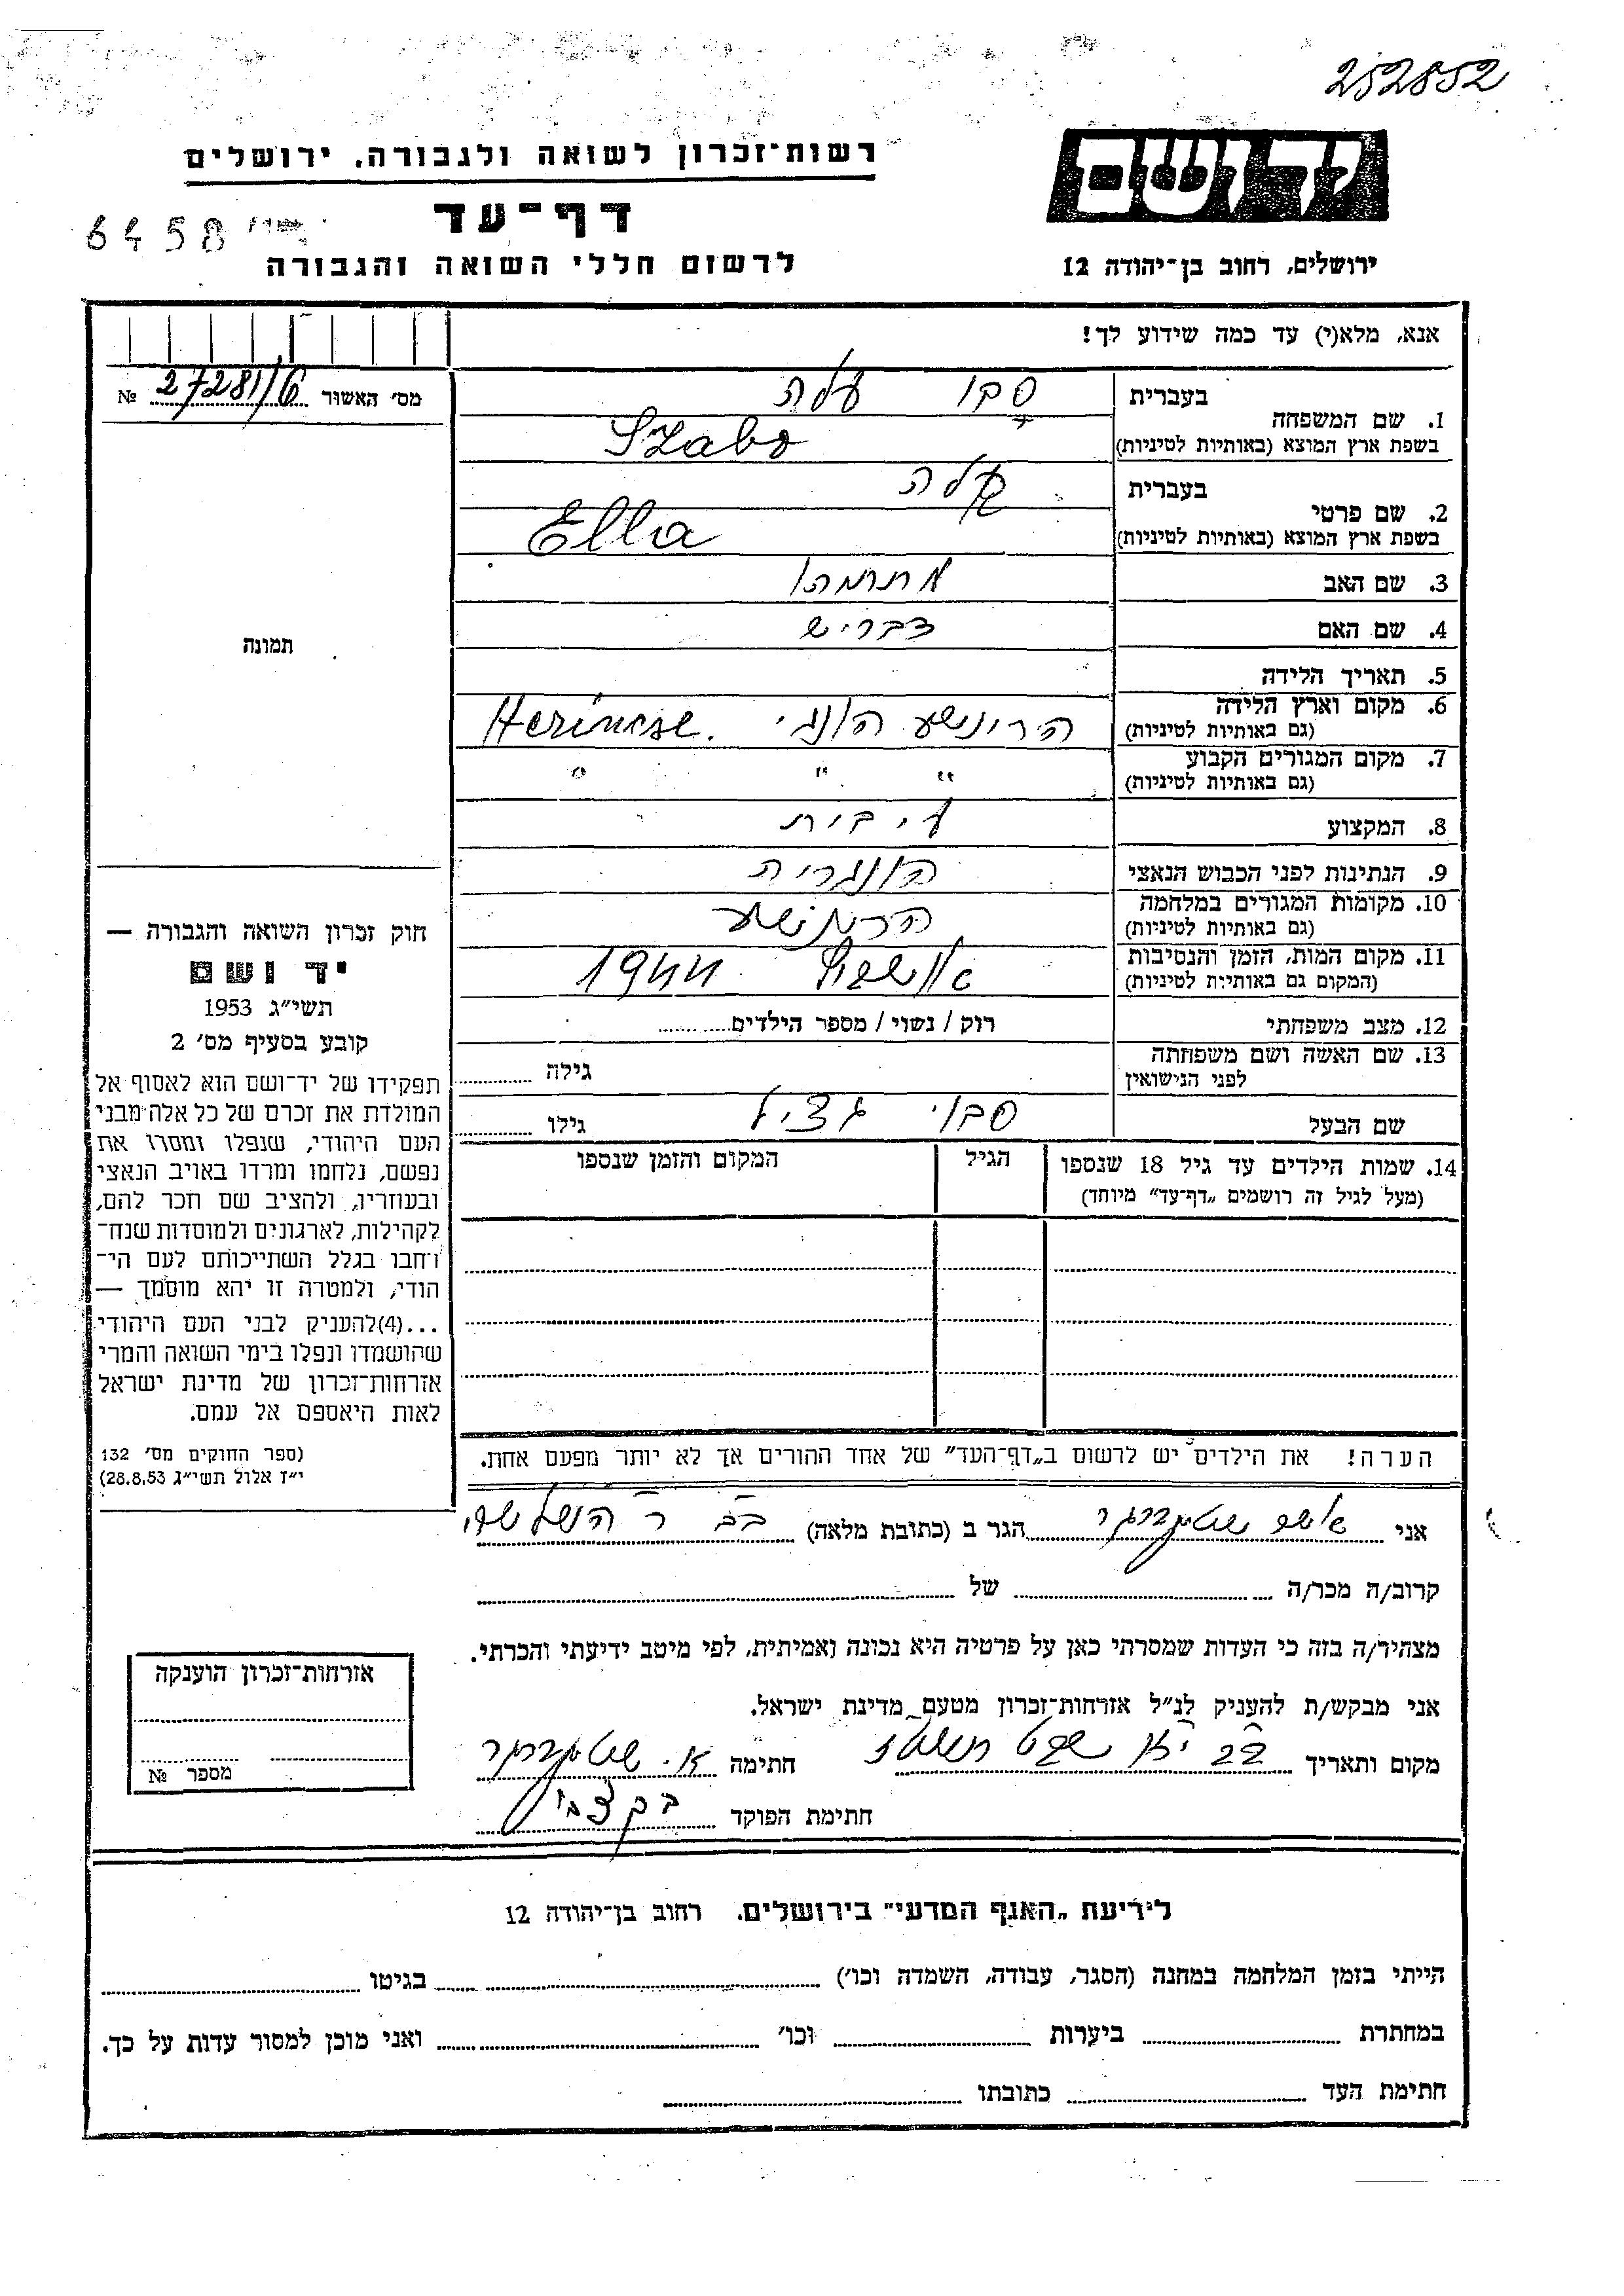 252852
יד ושם
רשות־זכרון לשואה ולגבורה. ירושלים
דף־עד
6458
ירושלים, רחוב בן־יהודה 12
לרשום חללי השואה והגבורה
אנא, מלא(י) עד כמה שידוע לך!
מס׳ האשור № 27281/6
בעברית
1. שם המשפחה
סבו עלה
בשפת ארץ המוצא (באותיות לטיניות)
Szabo
בעברית
2. שם פרטי
עלה
בשפת ארץ המוצא (באותיות לטיניות)
Ella
3. שם האב
מתתיהו
4. שם האם
תמונה
5. תאריך הלידה
6. מקום וארץ הלידה
(גם באותיות לטיניות)
7. מקום המגורים הקבוע
(גם באותיות לטיניות)
" " "
8. המקצוע
ע. בית
9. הנתינות לפני הכבוש הנאצי
הונגריה
10. מקומות המגורים במלחמה
(גם באותיות לטיניות)
11. מקום המות, הזמן והנסיבות
(המקום גם באותיות לטיניות)
1944
12. מצב משפחתי רוק / נשוי / מספר הילדים
13. שם האשה ושם משפחתה
לפני הנישואין
גילה
שם הבעל
גילו
14. שמות הילדים עד גיל 18 שנספו
(מעל לגיל זה רושמים „דף־עד” מיוחד)
הגיל
המקום והזמן שנספו
חוק זכרון השואה והגבורה —
יד ושם
תשי״ג 1953
קובע בסעיף מס׳ 2
תפקידו של יד־ושם הוא לאסוף אל
המולדת את זכרם של כל אלה מבני
העם היהודי, שנפלו ומסרו את
נפשם, נלחמו ומרדו באויב הנאצי
ובעוזריו, ולהציב שם וזכר להם,
לקהילות, לארגונים ולמוסדות שנח־
רבו בגלל השתייכותם לעם הי־
הודי, ולמטרה זו יהא מוסמך —
...(4)להעניק לבני העם היהודי
שהושמדו ונפלו בימי השואה והמרי
אזרחות־זכרון של מדינת ישראל
לאות היאספם אל עמם.
(ספר החוקים מס׳ 132
י״ז אלול תשי״ג 28.8.53)
הערה! את הילדים יש לרשום ב„דף־העד” של אחד ההורים אך לא יותר מפעם אחת.
אני
הגר ב (כתובת מלאה)
קרוב/ה מכר/ה של
מצהיר/ה בזה כי העדות שמסרתי כאן על פרטיה היא נכונה ואמיתית, לפי מיטב ידיעתי והכרתי.
אני מבקש/ת להעניק לנ״ל אזרחות־זכרון מטעם מדינת ישראל.
מקום ותאריך
חתימה
חתימת הפוקד
אזרחות־זכרון הוענקה
מספר №
לידיעת „האגף המדעי” בירושלים. רחוב בן־יהודה 12
הייתי בזמן המלחמה במחנה (הסגר, עבודה, השמדה וכו׳) בגיטו
במחתרת ביערות וכו׳ ואני מוכן למסור עדות על כך.
חתימת העד כתובתו